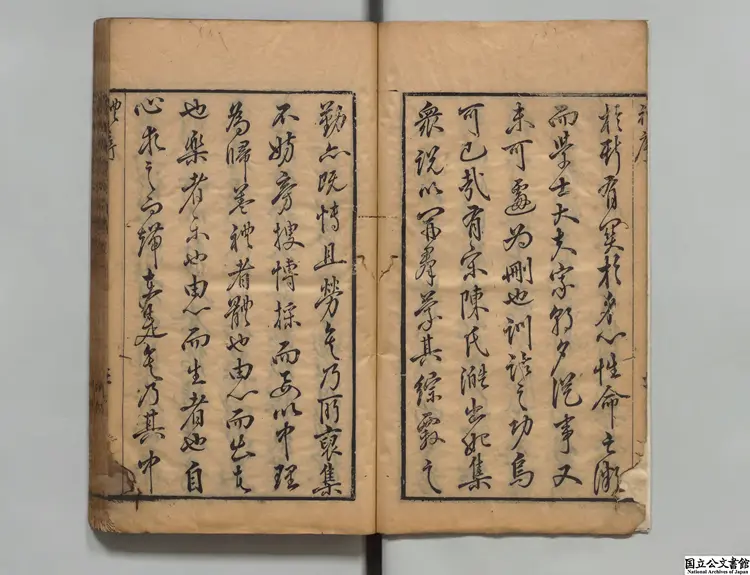 於斯有関於身心性命之微
而学士大夫家朝夕從事又
未可遽為刪也訓詁之功烏
可已哉有宋陳氏澔出如集
衆説以開羣蒙其綜覈之
勤亦既博且勞矣乃所裒集
不妨旁搜博採而要以中理
為歸蓋禮者體也由心而出者
也樂者樂也由心而生者也自
心求之而 矣乃其中
禮序
国立公文書館
National Archives of Japan